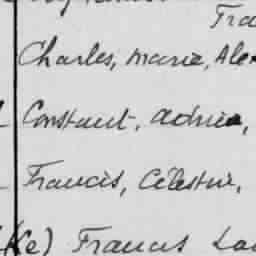 Fra
Charles, Marie, Ale
Constant, Adrien,
Francis, Célestin,
(Ke) Francis